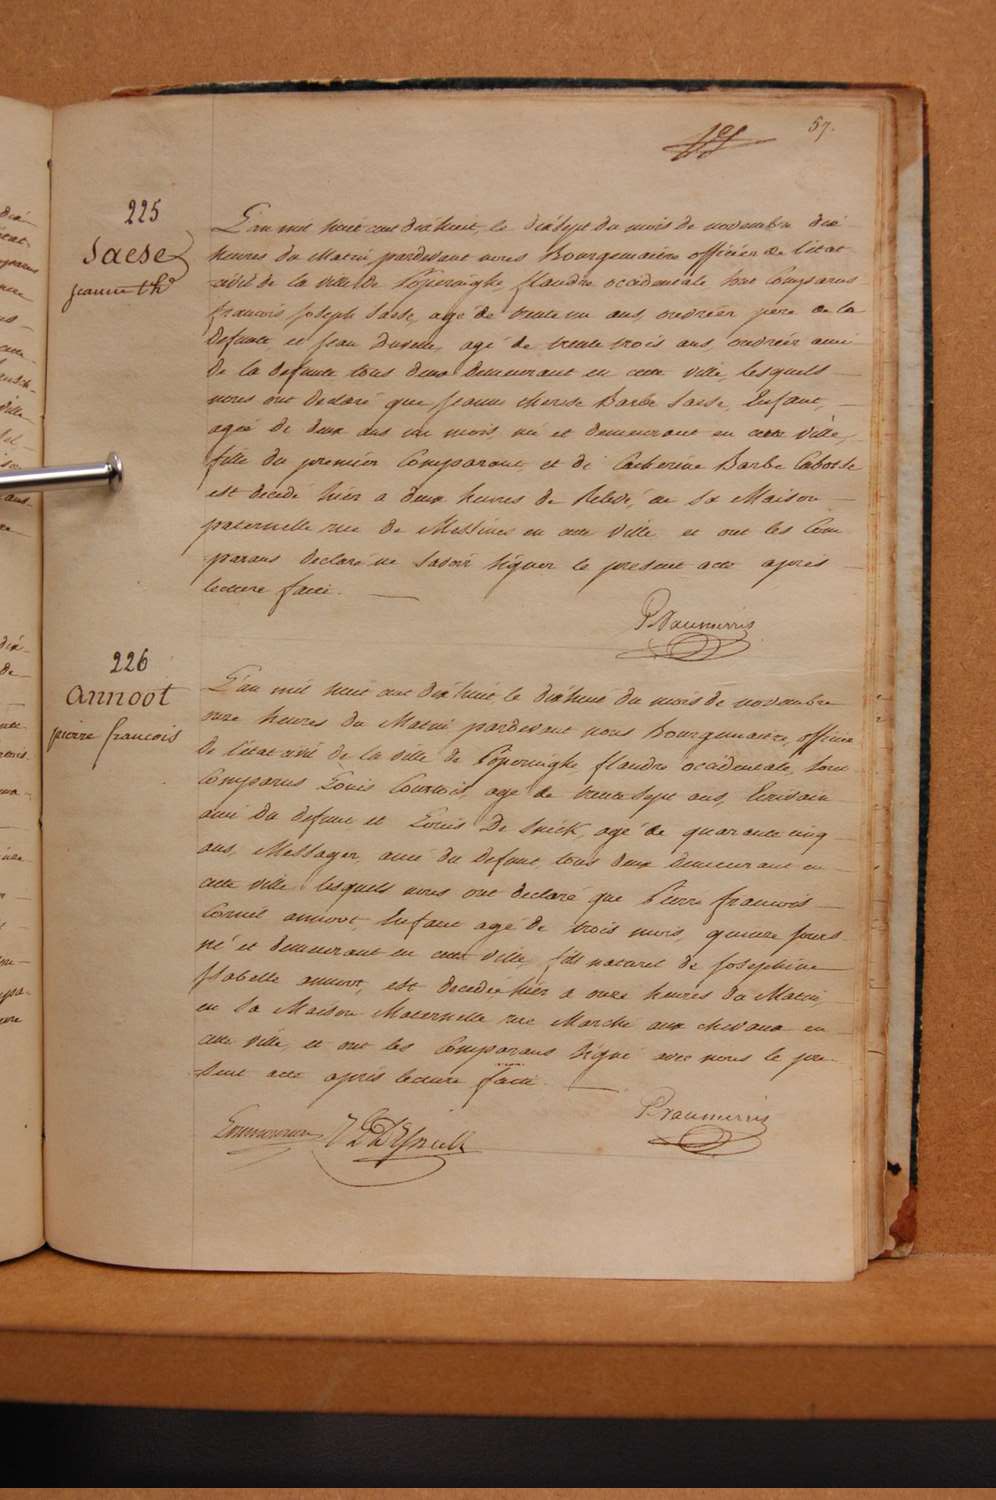 57.
225
Saese
jeanne th
L'an mil huit cent dix huit, le dix sept du mois de novembre dix
heures du Matin pardevant nous Bourgemaitre officier de l'état
civil de la ville de Poperinghe, flandre occidentale, sont Comparus
francois Joseph Saese, agé de trente un ans, ouvrier pere de la
defunte, et Jean agé de trente trois ans ouvrier ami
de la defunte tous deux demeurant en cette ville, lesquels
nous ont declaré que Jeanne therese Barbe Saese, Enfant,
agée de deux ans un mois, né et demeurant en cette ville,
fille du premier Comparant, et de Catherine Barbe Cabotse
est decedé hier a deux heures de Relevé, en sa Maison
paternelle rue de Messines en cette ville, et ont les Com
parans declaré ne savoir signer le present acte après
lecture faite.
P. Vanmerris
226
annoot
pierre francois
L'an mil huit cent dix huit, le dix huit du mois de novembre
onze heures du Matin pardevant nous Bourgemaitre, officier
de l'état civil de la ville de Poperinghe, flandre occidentale, sont
Comparus Louis Courtois, agé de trente sept ans, Ecrivain
ami du defunt et Louis De Snick, agé de quarante cinq
ans, Messager, ami du defunt, tous deux demeurant en
cette ville lesquels nous ont declaré que Pierre francois
Corneil annoot, Enfant agé de trois mois, quinze jours
né et demeurant en cette ville, fils naturel de Josephine
Isabelle annoot, est decedée hier a onze heures du Matin,
en sa Maison Maternelle rue Marché aux chevaux en
cette ville, et ont les Comparans signé avec nous le pre-
sent acte après lecture faite.
P. Vanmerris